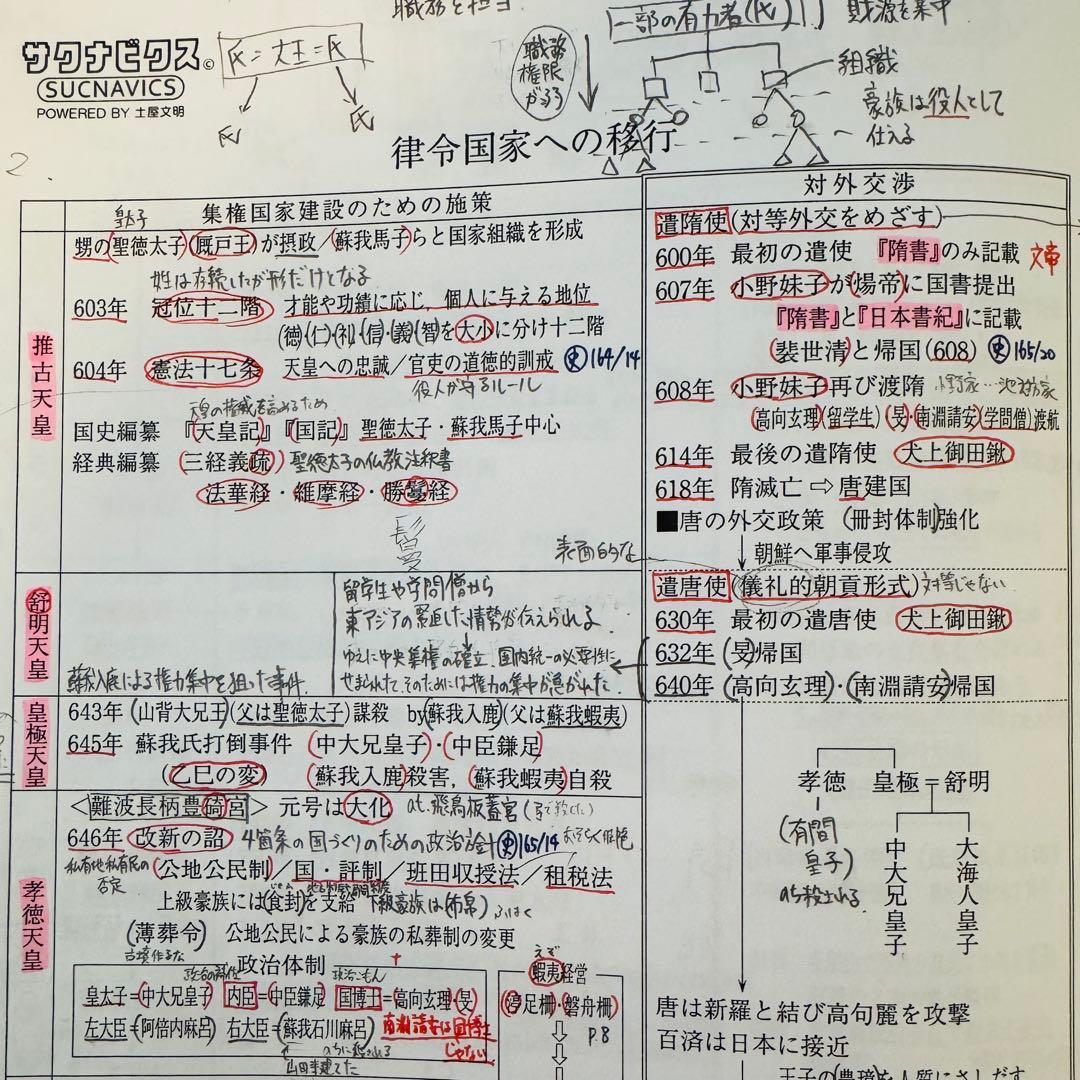 職務を担当
一部の有力者(氏)
財源を集中
サクナビクス©
SUCNAVICS
POWERED BY 土屋文明
氏=大王=氏
氏
氏
職務
権限
がろう
組織
豪族は役人として
仕える
2.
律令国家への移行
集権国家建設のための施策
皇太子
甥の(聖徳太子)(厩戸王)が摂政/(蘇我馬子)らと国家組織を形成
姓は存続したが形だけとなる
603年 冠位十二階 才能や功績に応じ,個人に与える地位
(徳)・(仁)・(礼)・(信)・(義)・(智)を大小に分け十二階
推古天皇
604年 憲法十七条 天皇への忠誠/官吏の道徳的訓戒 史164/14
役人が守るルール
天皇の権威を高めるため
国史編纂 『天皇記』『国記』 聖徳太子・蘇我馬子中心
経典編纂 (三経義疏) 聖徳太子の仏教注釈書
法華経・維摩経・勝鬘経
鬘
対外交渉
遣隋使(対等外交をめざす)
600年 最初の遣使 『隋書』のみ記載 文帝
607年 小野妹子が(煬帝)に国書提出
『隋書』と『日本書紀』に記載
(裴世清)と帰国(608) 史165/20
608年 小野妹子再び渡隋
(高向玄理)(留学生)(旻)・(南淵請安)(学問僧)渡航
614年 最後の遣隋使 犬上御田鍬
618年 隋滅亡⇨唐建国
■唐の外交政策 (冊封体制)強化
朝鮮へ軍事侵攻
表面的な
遣唐使(儀礼的朝貢形式) 対等じゃない
630年 最初の遣唐使 犬上御田鍬
632年 (旻)帰国
640年 (高向玄理)・(南淵請安)帰国
舒明天皇
留学生や学問僧から
東アジアの緊迫した情勢が伝えられる
ゆえに中央集権の確立、国内統一の必要性に
せまられた。そのためには権力の集中が急がれた。
蘇我入鹿による権力集中を狙った事件
皇極天皇
643年 (山背大兄王)(父は聖徳太子)謀殺 by(蘇我入鹿)(父は蘇我蝦夷)
645年 蘇我氏打倒事件 (中大兄皇子)・(中臣鎌足)
(乙巳の変) (蘇我入鹿)殺害,(蘇我蝦夷)自殺
孝徳天皇
<難波長柄豊碕宮> 元号は大化 at.飛鳥板蓋宮
646年 改新の詔 4箇条の国づくりのための政治方針 史165/14
私有地私有民の
否定
(公地公民制)/国・評制/班田収授法/租税法
上級豪族には(食封)を支給 下級豪族は(布帛) ふはく
(薄葬令) 公地公民による豪族の私葬制の変更
古墳作るな
政治体制
政治こもん
皇太子=(中大兄皇子) 内臣=(中臣鎌足) 国博士=(高向玄理)・(旻)
左大臣=(阿倍内麻呂) 右大臣=(蘇我石川麻呂)
南淵請安は国博士
じゃない
山田寺建てた
えぞ
蝦夷経営
(渟足柵)・(磐舟柵)
P.8
孝徳 皇極=舒明
(有間
皇子)
のち殺される
中大兄皇子
大海人皇子
唐は新羅と結び高句麗を攻撃
百済は日本に接近
王子の(豊璋)を人質にさしだす